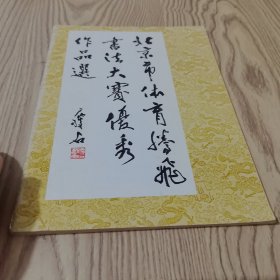 北京市体育腾飞
书法大赛优秀
作品選